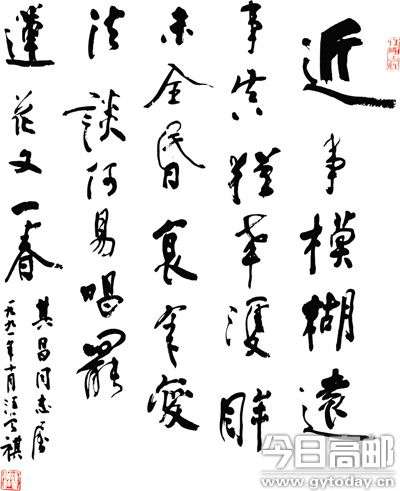 近事模糊遠
事真猶幸雙眸
未全昏衰年變
法談何易唱罷
蓮花又一春
其昌同志屬
一九九一年十月汪曾祺
今日高邮
www.gytoday.cn